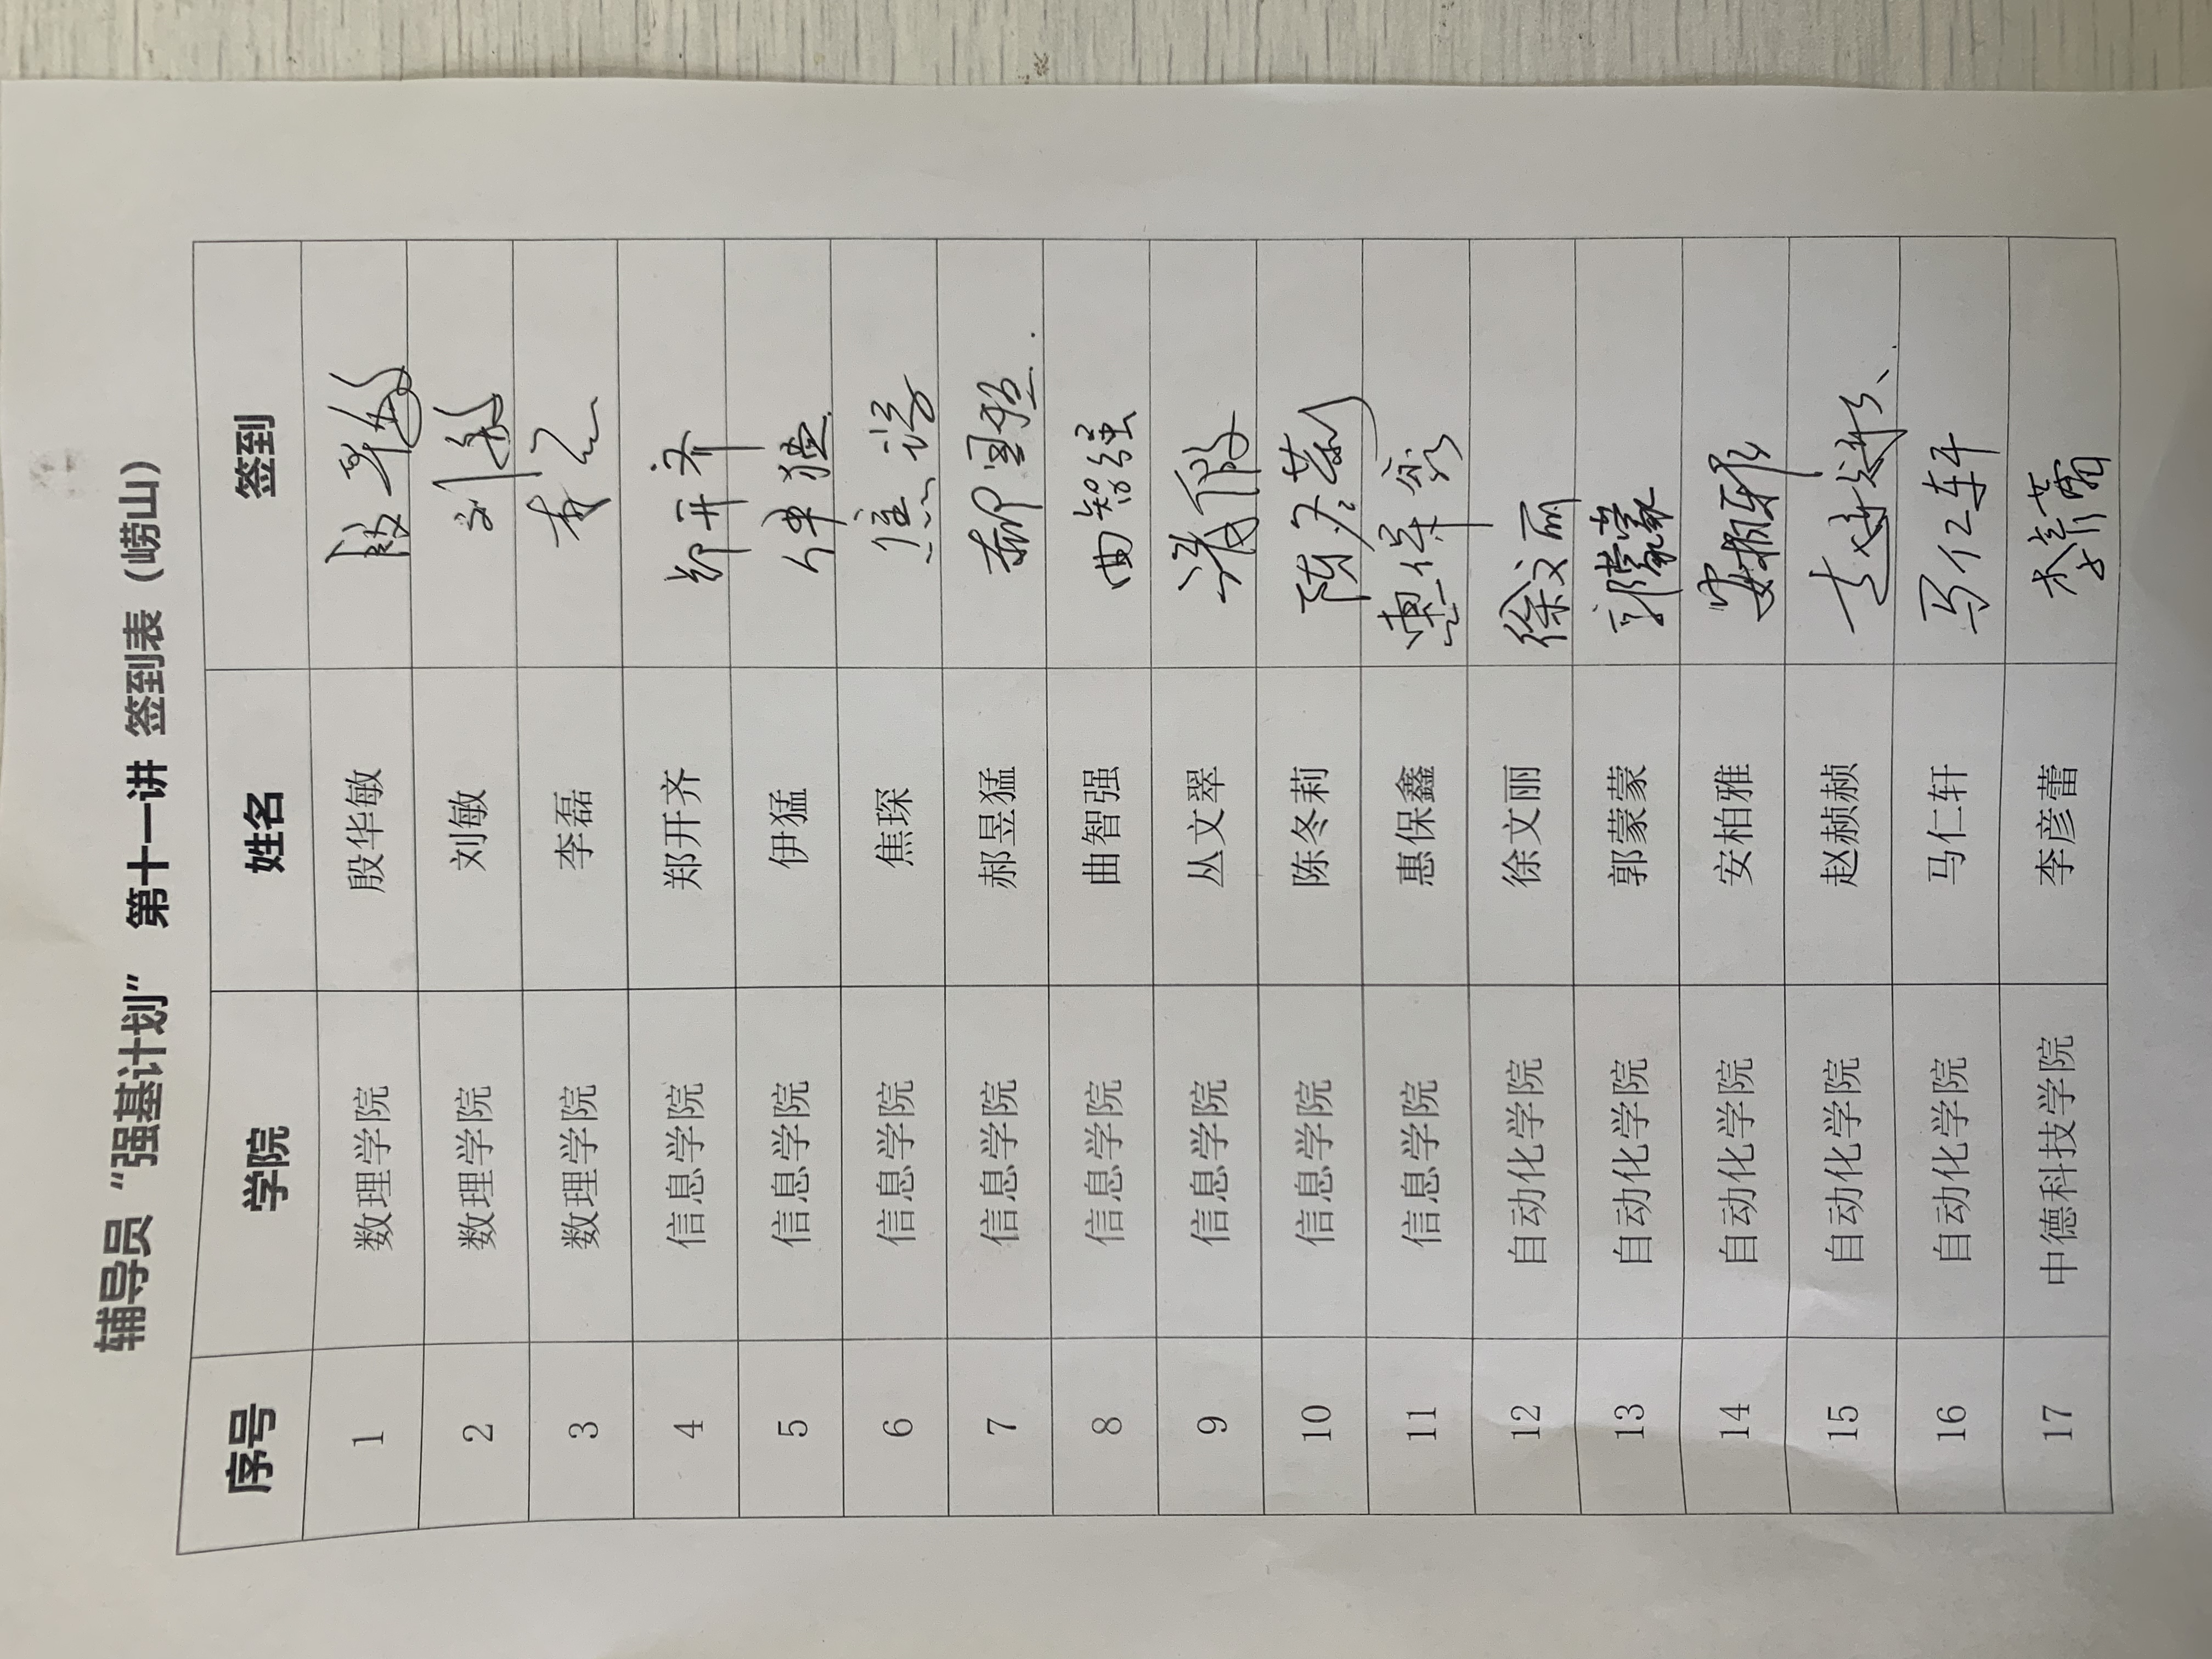 辅导员“强基计划” 第十一讲 签到表（崂山）
序号 学院 姓名 签到
1 数理学院 殷华敏 殷华敏
2 数理学院 刘敏 刘敏
3 数理学院 李磊 李
4 信息学院 郑开齐 郑开齐
5 信息学院 伊猛 伊猛
6 信息学院 焦琛 焦
7 信息学院 郝昱猛 郝昱猛
8 信息学院 曲智强 曲智强
9 信息学院 丛文翠
10 信息学院 陈冬莉 陈冬莉
11 信息学院 惠保鑫 惠保鑫
12 自动化学院 徐文丽 徐文丽
13 自动化学院 郭蒙蒙 郭蒙蒙
14 自动化学院 安柏雅 安柏雅
15 自动化学院 赵赪赪 赵赪赪
16 自动化学院 马仁轩 马仁轩
17 中德科技学院 李彦蕾 李彦蕾